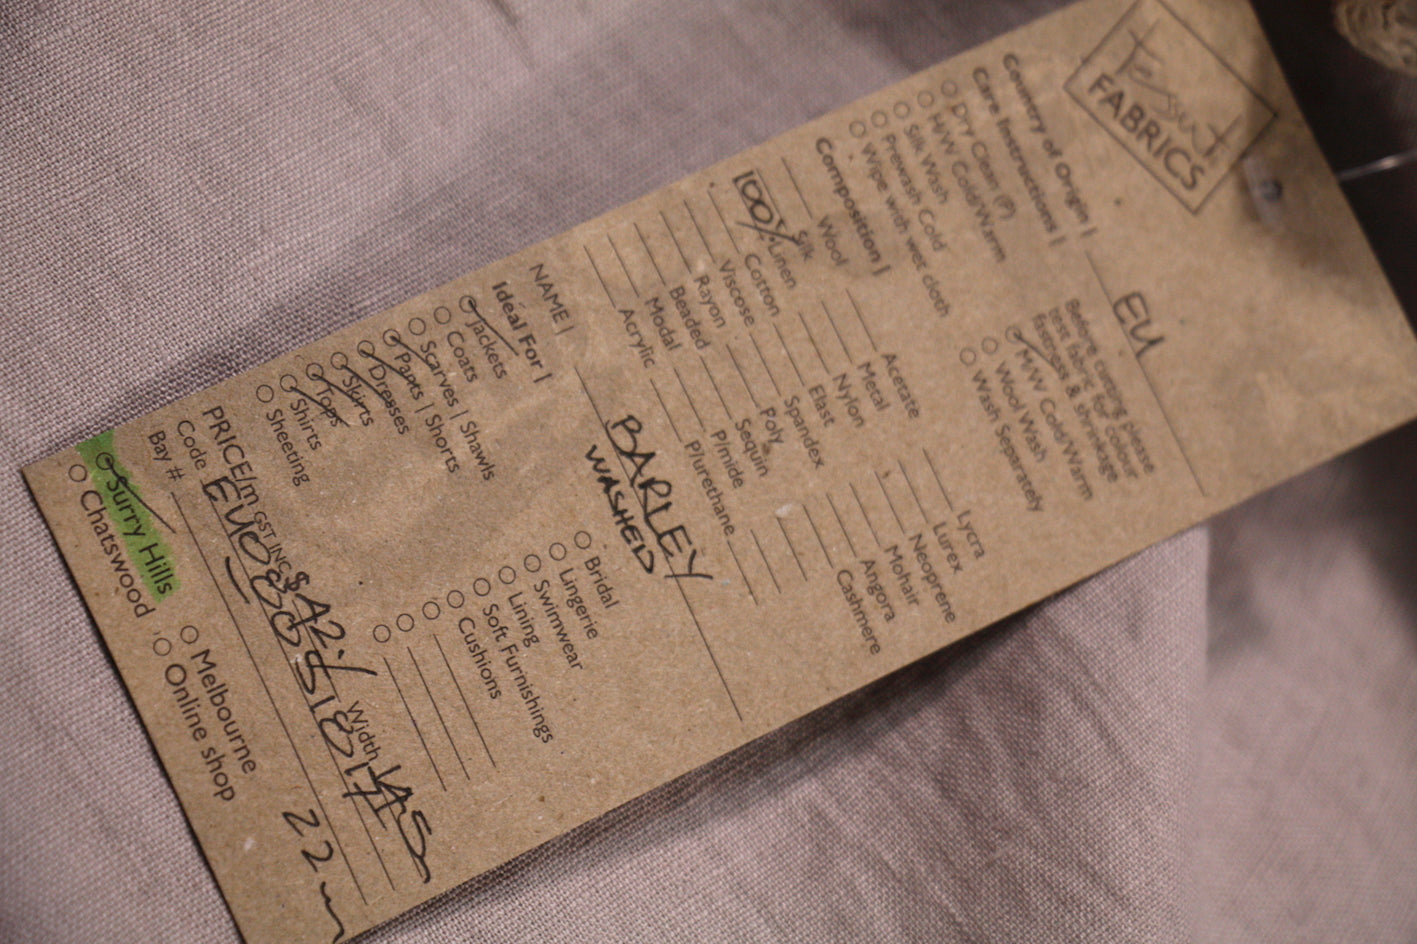 tessuti
FABRICS
Country of Origin | EU
Care Instructions |
Dry Clean (P)
H/W Cold/Warm
Silk Wash
Prewash Cold
Wipe with wet cloth
Before cutting please
test fabric for colour
fastness & shrinkage
M/W Cold/Warm
Wool Wash
Wash Separately
Composition |
Wool
Silk
100% Linen
Cotton
Viscose
Rayon
Beaded
Modal
Acrylic
Acetate
Metal
Nylon
Elast
Spandex
Poly
Sequin
P/mide
P/urethane
Lycra
Lurex
Neoprene
Mohair
Angora
Cashmere
NAME | BARLEY
WASHED
Ideal For |
Jackets
Coats
Scarves | Shawls
Pants | Shorts
Dresses
Skirts
Tops
Shirts
Sheeting
Bridal
Lingerie
Swimwear
Lining
Soft Furnishings
Cushions
PRICE/m GST INC $42.- Width 145
Code
Bay #
Surry Hills
Chatswood
Melbourne
Online shop
22m